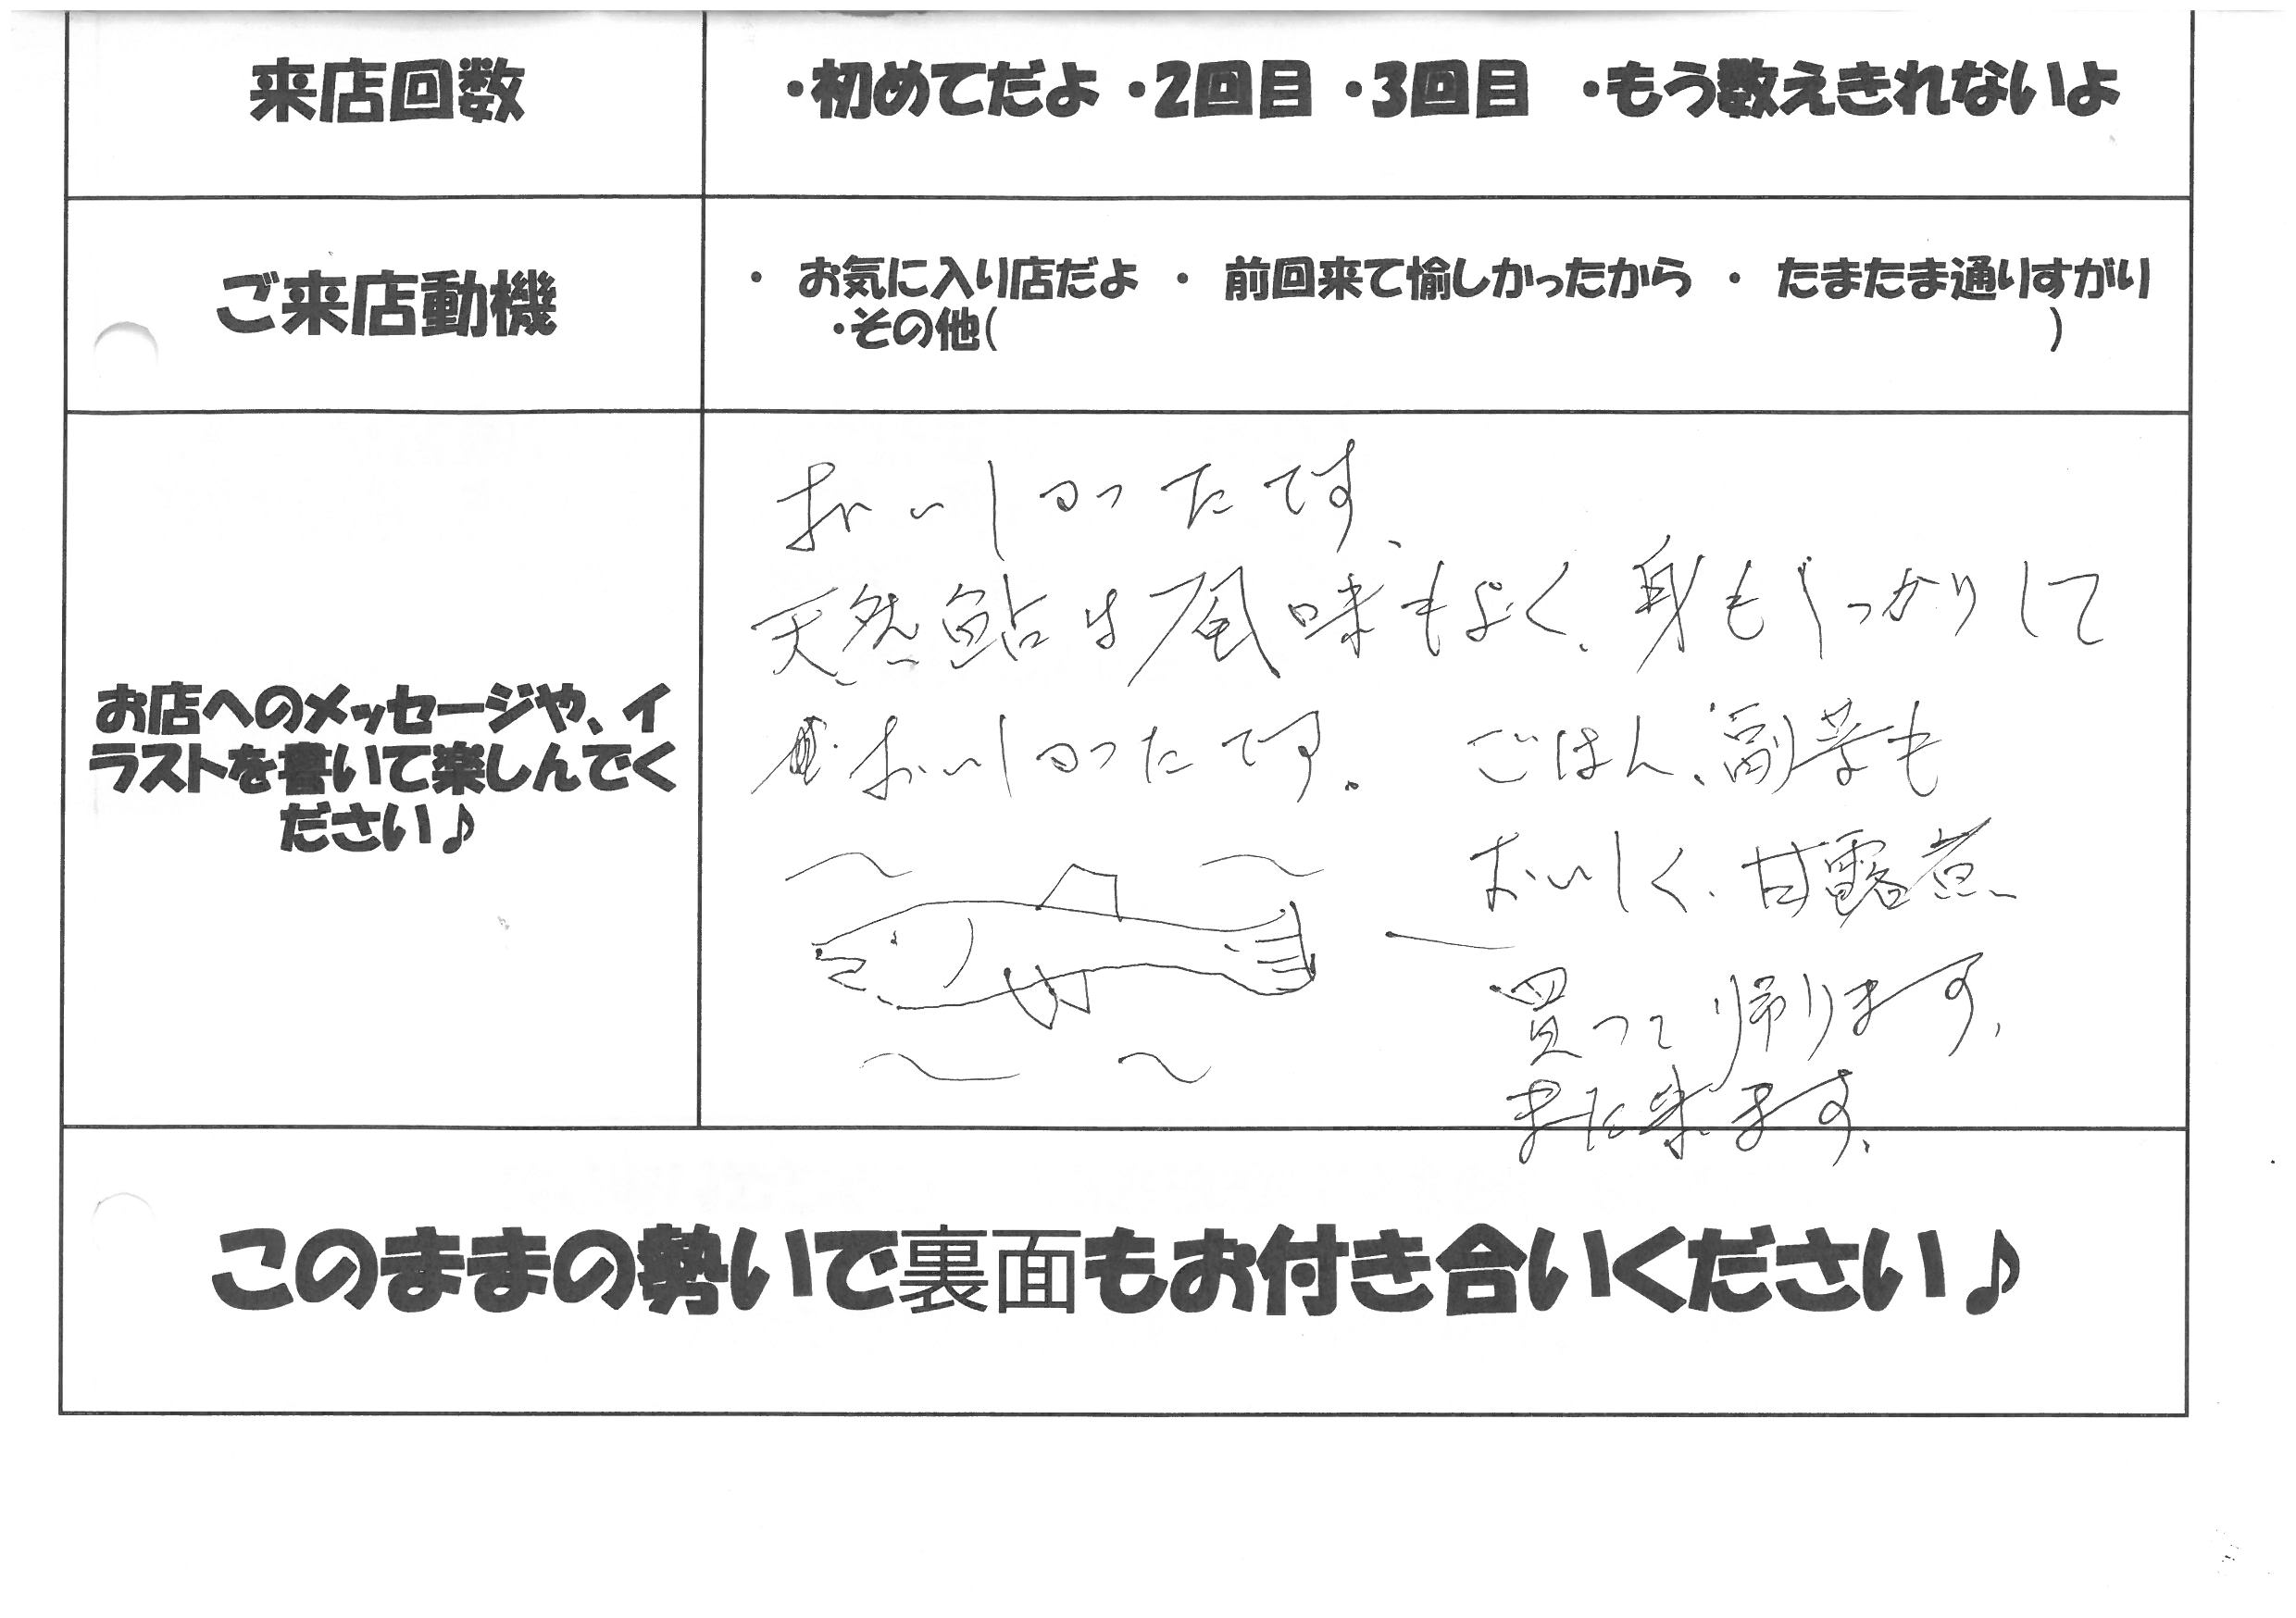 来店回数
・初めてだよ ・2回目 ・3回目 ・もう数えきれないよ
ご来店動機
・ お気に入り店だよ ・ 前回来て愉しかったから ・ たまたま通りすがり
・その他( )
お店へのメッセージや、イ
ラストを書いて楽しんでく
ださい♪
おいしかったです、
天然鮎は風味もよく、身もしっかりして
おいしかったです。
ごはん、副菜も
おいしく、甘露煮
買って帰ります、
また来ます、
このままの勢いで裏面もお付き合いください♪